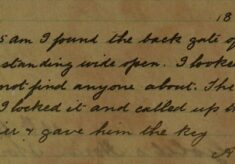 18
5 am I found the back gate of
standing wide open. I looked
not find anyone about. The
I locked it and called up
ier & gave him the key